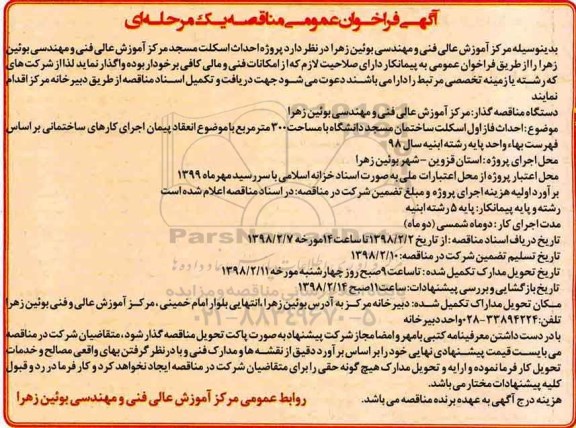 آگهی فراخوان عمومی مناقصه یک مرحله‌ای
بدینوسیله مرکز آموزش عالی فنی و مهندسی بوئین زهرا در نظر دارد پروژه احداث اسکلت مسجد مرکز آموزش عالی فنی و مهندسی بوئین
زهرا را از طریق فراخوان عمومی به پیمانکار دارای صلاحیت لازم که از امکانات فنی و مالی کافی برخوردار بوده واگذار نماید لذا از شرکت های
که رشته یا زمینه تخصصی مرتبط را دارا می باشند دعوت می شود جهت دریافت و تکمیل اسناد مناقصه از طریق دبیرخانه مرکز اقدام
نمایند
دستگاه مناقصه گذار: مرکز آموزش عالی فنی و مهندسی بوئین زهرا
موضوع: احداث فاز اول اسکلت ساختمان مسجد دانشگاه با مساحت ۳۰۰ متر مربع با موضوع انعقاد پیمان اجرای کارهای ساختمانی بر اساس
فهرست بهاء واحد پایه رشته ابنیه سال ۹۸
محل اجرای پروژه: استان قزوین - شهر بوئین زهرا
محل اعتبار پروژه از محل اعتبارات ملی به صورت اسناد خزانه اسلامی با سررسید مهرماه ۱۳۹۹
برآورد اولیه هزینه اجرای پروژه و مبلغ تضمین شرکت در مناقصه: در اسناد مناقصه اعلام شده است
رشته و پایه پیمانکار: پایه ۵ رشته ابنیه
مدت اجرای کار: دو ماه شمسی (دو ماه)
تاریخ دریافت اسناد مناقصه: از تاریخ ۱۳۹۸/۲/۲ تا ساعت ۱۴ مورخه ۱۳۹۸/۲/۷
تاریخ تسلیم تضمین شرکت در مناقصه: ۱۳۹۸/۲/۱۰
تاریخ تحویل مدارک تکمیل شده: تا ساعت ۹ صبح روز چهارشنبه مورخه ۱۳۹۸/۲/۱۱
تاریخ بازگشایی و بررسی پیشنهادات: ساعت ۱۱ صبح ۱۳۹۸/۲/۱۴
مکان تحویل مدارک تکمیل شده: دبیرخانه مرکز به آدرس بوئین زهرا، انتهایی بلوار امام خمینی، مرکز آموزش عالی و فنی بوئین زهرا
تلفن: ۳۳۸۹۴۲۲۴-۰۲۸ واحد دبیرخانه
با در دست داشتن معرفینامه کتبی با مهر و امضا مجاز شرکت پیشنهاد به صورت پاکت تحویل مناقصه گذار شود، متقاضیان شرکت در مناقصه
می بایست قیمت پیشنهادی نهایی خود را بر اساس برآورد دقیق از نقشه ها و مدارک فنی و با در نظر گرفتن بهای واقعی مصالح و خدمات
تحویل کار فرما نموده و ارایه و تحویل مدارک هیچ گونه حقی را برای متقاضیان شرکت در مناقصه ایجاد نخواهد کرد و کار فرما در رد و قبول
کلیه پیشنهادات مختار می باشد.
هزینه درج آگهی به عهده برنده مناقصه می باشد.
روابط عمومی مرکز آموزش عالی فنی و مهندسی بوئین زهرا
ParsNamadData
۰۲۱-۸۸۳۴۹۶۷۰-۵